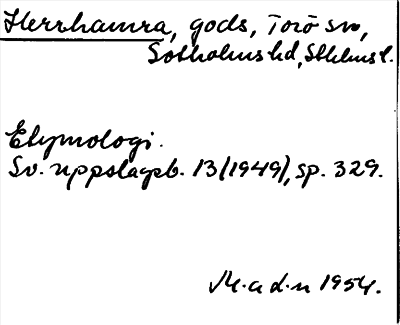 Herrhamra, gods, Torö sn,
Sotholms hd, Sthlms l.
Etymologi.
Sv. uppslagsb. 13 (1949), sp. 329.
M. a d. n 1954.